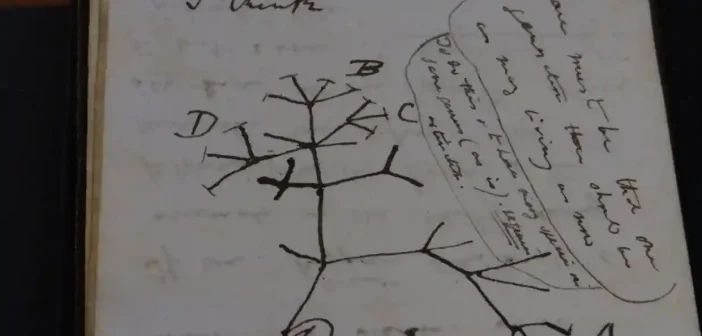 I think
case must be that one
generation then should be
as many living as now
To do this & to have many species in
same genus (as is). requires
extinction.
B
C
D
A